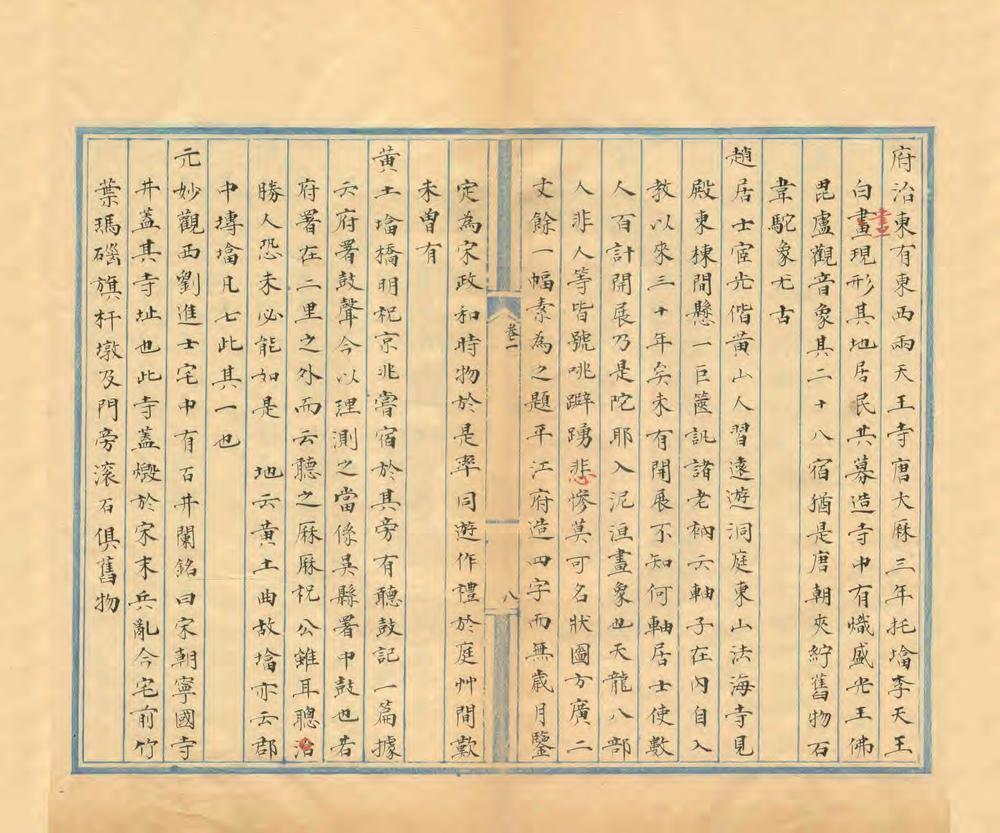 府治東有東西兩天王寺唐大厤三年托㙮李天王
白畫現形其地居民共募造寺中有熾盛光王佛
晝
毘盧觀音象其二十八宿猶是唐朝夾紵舊物石
韋馱象尤古
趙居士宧光偕黄山人習遠遊洞庭東山法海寺見
殿東棟間懸一巨篋訊諸老衲云軸子在內自入
教以來三十年矣未有開展不知何軸居士使數
人百計開展乃是陀耶入泥洹畫象也天龍八部
人非人等皆號咷躃踴悲慘莫可名狀圖方廣二
丈餘一幅素為之題平江府造四字而無歲月鑒
卷二
八
定為宋政和時物於是率同遊作禮於庭艸間歎
未曾有
黄土㙮橋明祝京兆嘗宿於其旁有聽鼓記一篇據
云府署鼓聲今以理測之當係吳縣署中鼓也若
府署在二里之外而云聽之厤厤祝公雖耳聰治
勝人恐未必能如是 地云黄土曲故㙮亦云郡
中塼㙮凡七此其一也
元妙觀西劉進士宅中有石井闌銘曰宋朝寧國寺
井蓋其寺址也此寺蓋燬於宋末兵亂今宅前竹
葉瑪碯旗杆墩及門旁滾石俱舊物